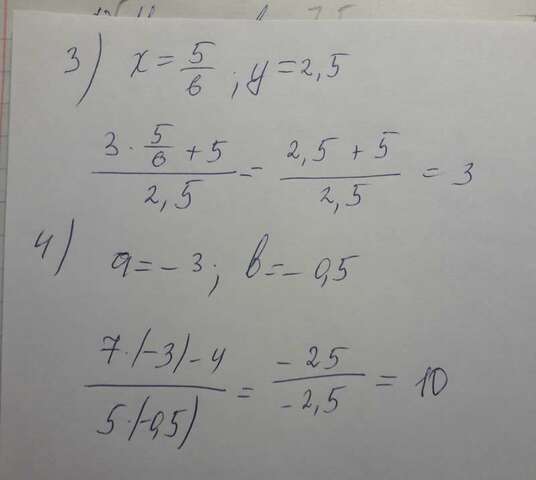 3) x = 5/6 ; y = 2,5
(3 · 5/6 + 5)/2,5 = (2,5 + 5)/2,5 = 3
4) a = - 3 ; b = - 0,5
(7·(-3) - 4)/(5·(-0,5)) = (-25)/(-2,5) = 10